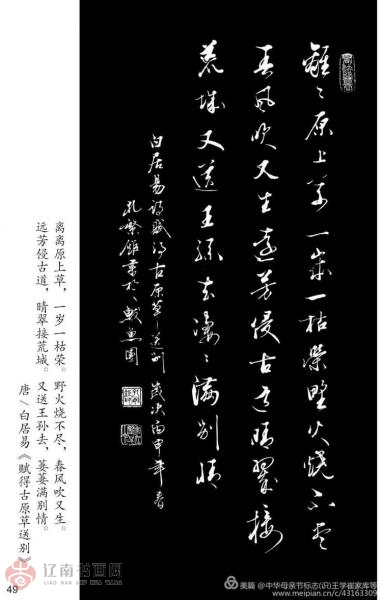 離〻原上草一歲一枯榮野火燒不盡
春風吹又生遠芳侵古道晴翠接
荒城又送王孫去萋〻滿別情
白居易詩賦得古原草送別 歲次丙申年春
孔繁 書於 魚園
离离原上草，一岁一枯荣。野火烧不尽，春风吹又生。
远芳侵古道，晴翠接荒城。又送王孙去，萋萋满别情。
唐/白居易《赋得古原草送别》
辽南书画网
49
美篇 @中华母亲节标志(识)王学崔家库等
www.meipian.cn/c/43163309